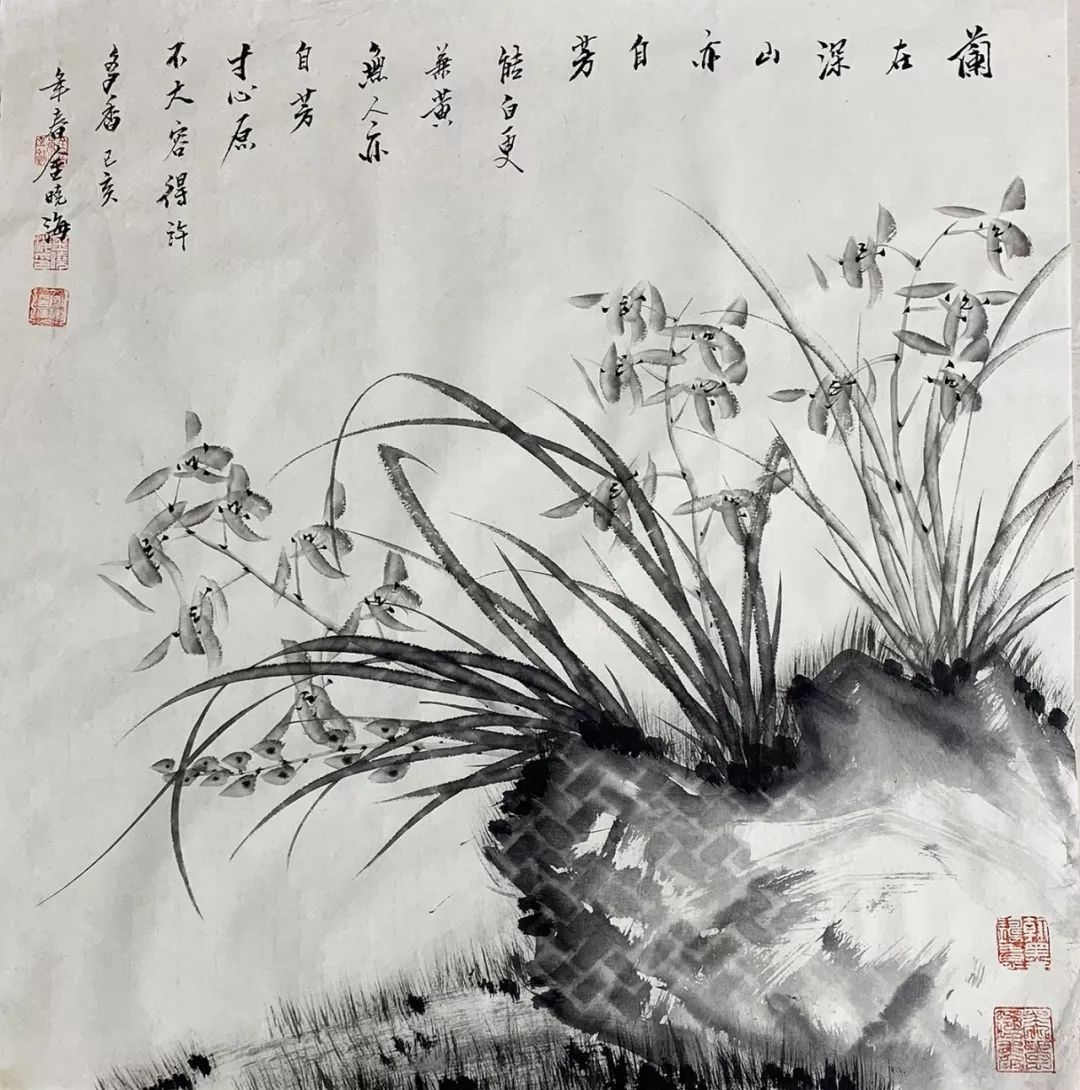 蘭在深山亦自芳
能白更
兼黄
無人亦
自芳
寸心原
不大容得許
多香 己亥
年春金晓海